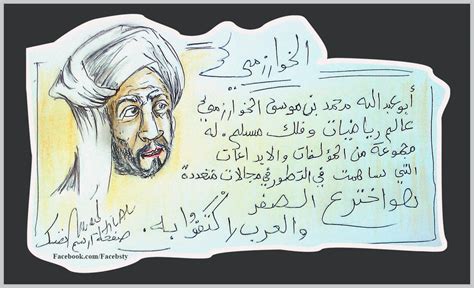 الخوارزمي
أبو عبد الله محمد بن موسى الخوارزمي
عالم رياضيات وفلك مسلم. له
مجموعة من المؤلفات والابداعات
التي ساهمت في التطور في مجالات متعددة
هو اخترع الصفر
والعرب اكتفوا به.
صفحة ارسم نفسك
Facebook.com/Facebsty